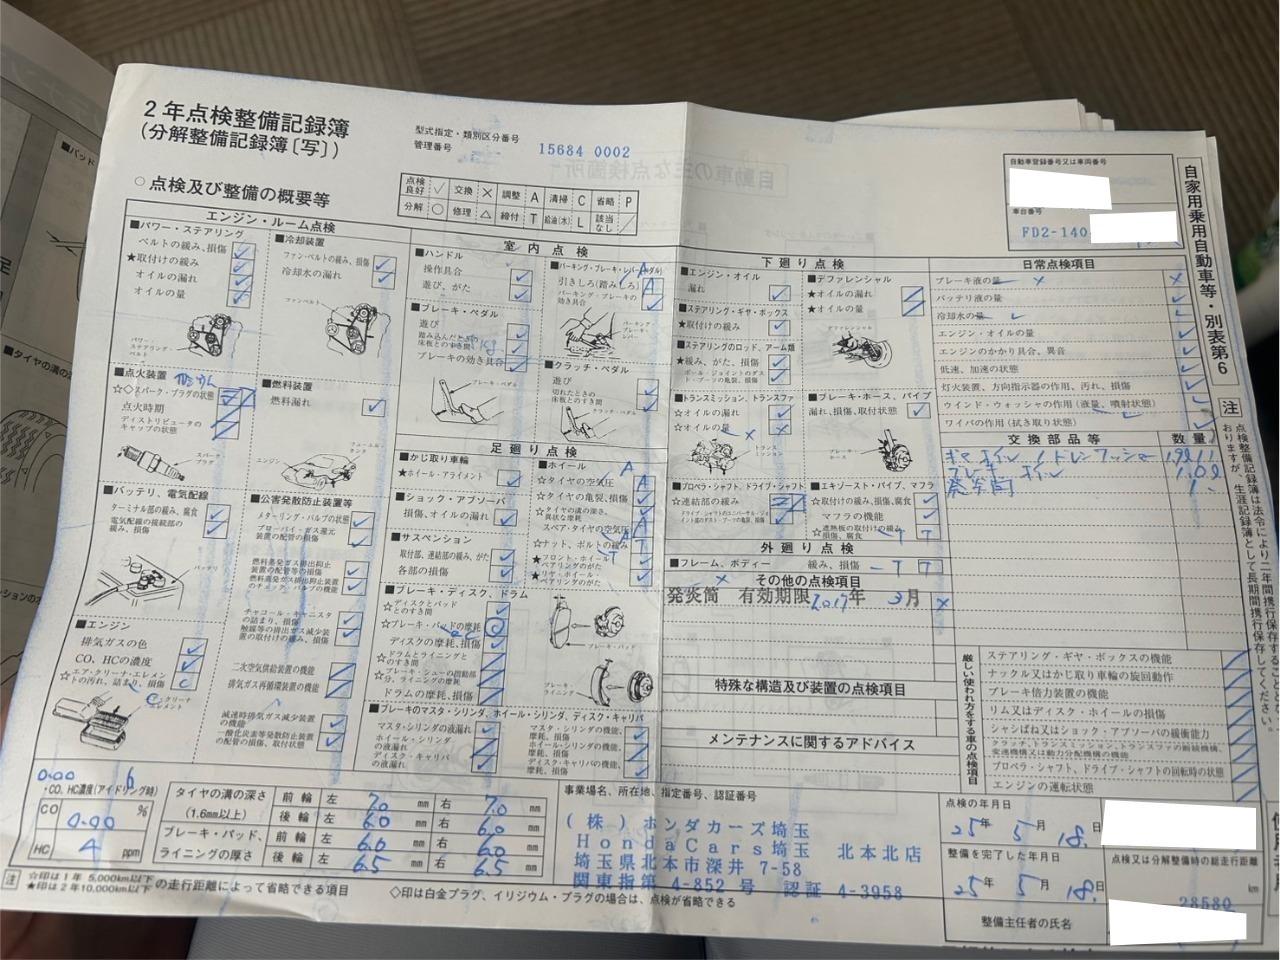 2年点検整備記録簿
(分解整備記録簿〔写〕)
型式指定・類別区分番号
管理番号
15684 0002
自動車登録番号又は車両番号
車台番号
FD2-140
自家用乗用自動車等・別表第6
○点検及び整備の概要等
点検良好 ✓ 交換 × 調整 A 清掃 C 省略 P
分解 ○ 修理 △ 締付 T 給油(水) L 該当なし /
エンジン・ルーム点検
■パワー・ステアリング
ベルトの緩み、損傷
★取付けの緩み
オイルの漏れ
オイルの量
パワー・ステアリング・ベルト
■冷却装置
ファン・ベルトの緩み、損傷
冷却水の漏れ
ファンベルト
■点火装置
☆◇スパーク・プラグの状態
点火時期
ディストリビュータのキャップの状態
スパーク・プラグ
■燃料装置
燃料漏れ
エンジン
■バッテリ、電気配線
ターミナル部の緩み、腐食
電気配線の接続部の緩み、損傷
バッテリ
■公害発散防止装置等
メターリング・バルブの状態
ブローバイ・ガス還元装置の配管の損傷
燃料蒸発ガス排出抑止装置の配管等の損傷
燃料蒸発ガス排出抑止装置のチェック・バルブの機能
チャコール・キャニスタの詰まり、損傷
触媒等の排出ガス減少装置の取付けの緩み、損傷
二次空気供給装置の機能
排気ガス再循環装置の機能
減速時排気ガス減少装置の機能
一酸化炭素等発散防止装置の配管の損傷、取付状態
■エンジン
排気ガスの色
CO、HCの濃度
☆エア・クリーナ・エレメントの汚れ、詰まり、損傷
室内点検
■ハンドル
操作具合
遊び、がた
■ブレーキ・ペダル
遊び
踏み込んだとき床板とのすき間
ブレーキの効き具合
ブレーキ・ペダル
■パーキング・ブレーキ・レバー(ペダル)
引きしろ(踏みしろ)
パーキング・ブレーキの効き具合
パーキング・ブレーキ・レバー
■クラッチ・ペダル
遊び
切れたときの床板とのすき間
クラッチ・ペダル
足廻り点検
■かじ取り車輪
★ホイール・アライメント
■ショック・アブソーバ
損傷、オイルの漏れ
■サスペンション
取付部、連結部の緩み、がた
各部の損傷
■ホイール
☆タイヤの空気圧
☆タイヤの亀裂、損傷
☆タイヤの溝の深さ、異状な摩耗
スペア・タイヤの空気圧
☆ナット、ボルトの緩み
★フロント・ホイール・ベアリングのがた
★リヤ・ホイール・ベアリングのがた
■ブレーキ・ディスク、ドラム
☆ディスクとパッドとのすき間
☆ブレーキ・パッドの摩耗
ディスクの摩耗、損傷
☆ドラムとライニングとのすき間
☆ブレーキ・シューの摺動部分、ライニングの摩耗
ドラムの摩耗、損傷
ブレーキ・パッド
ブレーキ・ライニング
■ブレーキのマスタ・シリンダ、ホイール・シリンダ、ディスク・キャリパ
マスタ・シリンダの液漏れ
ホイール・シリンダの液漏れ
ディスク・キャリパの液漏れ
マスタ・シリンダの機能、摩耗、損傷
ホイール・シリンダの機能、摩耗、損傷
ディスク・キャリパの機能、摩耗、損傷
下廻り点検
■エンジン・オイル
漏れ
■ステアリング・ギヤ・ボックス
★取付けの緩み
■ステアリングのロッド、アーム類
★緩み、がた、損傷
ボール・ジョイントのダスト・ブーツの亀裂、損傷
■トランスミッション、トランスファ
☆オイルの漏れ
☆オイルの量
■プロペラ・シャフト、ドライブ・シャフト
☆連結部の緩み
ドライブ・シャフトのユニバーサル・ジョイント部のダスト・ブーツの亀裂、損傷
■デファレンシャル
★オイルの漏れ
★オイルの量
デファレンシャル
■ブレーキ・ホース、パイプ
漏れ、損傷、取付状態
■エキゾースト・パイプ、マフラ
☆取付けの緩み、損傷、腐食
マフラの機能
☆遮熱板の取付けの緩み、損傷、腐食
外廻り点検
■フレーム、ボディー
緩み、損傷
その他の点検項目
発炎筒 有効期限 2017年 3月
特殊な構造及び装置の点検項目
メンテナンスに関するアドバイス
日常点検項目
ブレーキ液の量
バッテリ液の量
冷却水の量
エンジン・オイルの量
エンジンのかかり具合、異音
低速、加速の状態
灯火装置、方向指示器の作用、汚れ、損傷
ウインド・ウォッシャの作用(液量、噴射状態)
ワイパの作用(拭き取り状態)
交換部品等 数量
ギヤオイル / ドレンワッシャー
ブレーキオイル 1.0ℓ
発炎筒 1
厳しい使われ方をする車の点検項目
ステアリング・ギヤ・ボックスの機能
ナックル又はかじ取り車輪の旋回動作
ブレーキ倍力装置の機能
リム又はディスク・ホイールの損傷
シャシばね又はショック・アブソーバの緩衝能力
クラッチ、トランスミッション、トランスファの断続機構、変速機構又は動力分配機構の機能
プロペラ・シャフト、ドライブ・シャフトの回転時の状態
エンジンの運転状態
注 点検整備記録簿は法令により二年間携行保存してください。
・CO、HC濃度(アイドリング時)
CO 0.00 %
HC 4 ppm
タイヤの溝の深さ (1.6mm以上)
前輪 左 7.0 mm 右 7.0 mm
後輪 左 6.0 mm 右 6.0 mm
ブレーキ・パッド、ライニングの厚さ
前輪 左 6.0 mm 右 6.0 mm
後輪 左 6.5 mm 右 6.5 mm
事業場名、所在地、指定番号、認証番号
(株)ホンダカーズ埼玉
HondaCars埼玉 北本北店
埼玉県北本市深井 7-58
関東指第 4-852 号 認証 4-3958
点検の年月日
25年 5月 18日
整備を完了した年月日
25年 5月 18日
点検又は分解整備時の総走行距離
28580 km
整備主任者の氏名
注 ☆印は1年 5,000km以下
★印は2年10,000km以下 の走行距離によって省略できる項目
◇印は白金プラグ、イリジウム・プラグの場合は、点検が省略できる